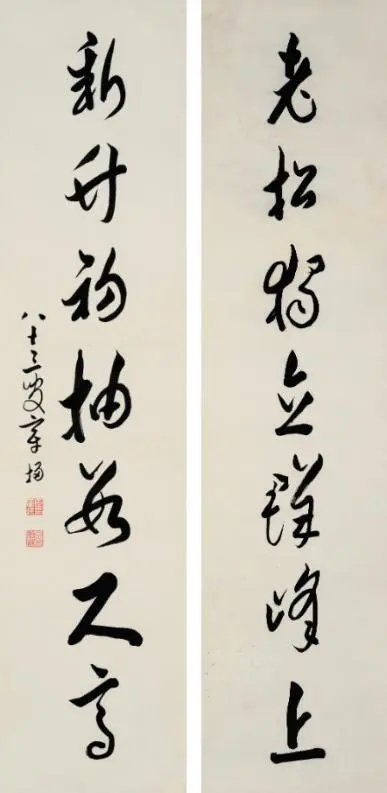 老松獨立群峰上
新竹初抽數尺高
八十三叟章梫